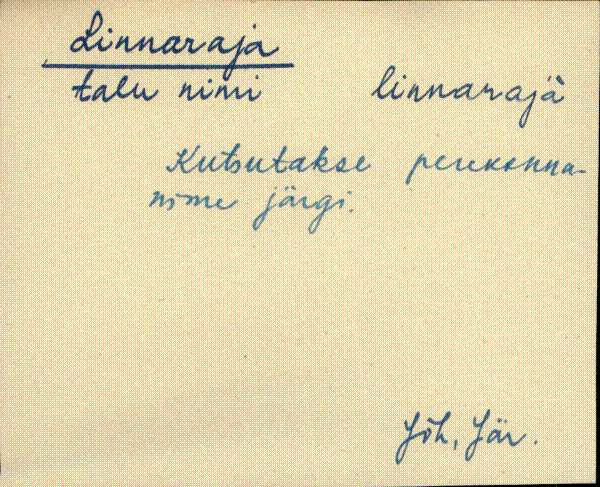 Linnaraja
talu nimi linnarajà
Kutsutakse perekonna-
nime järgi.
Jõh, Jär.